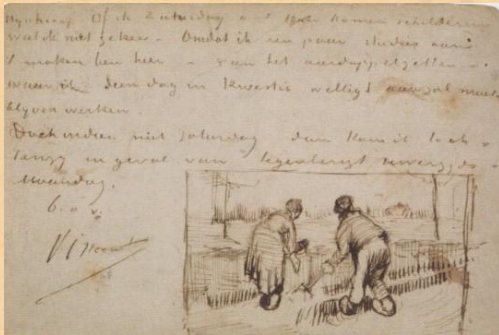 Of ik Zaturdag a s kan komen schilderen
weet ik niet zeker - Omdat ik een paar studies aan
't maken ben hier - van het aardappelpoten -
waar ik dien dag in kwestie welligt aan zal moeten
blyven werken.
Doch indien niet Saturdag dan kom ik toch
in geval van
Maandag.
b. à v.
Vincent